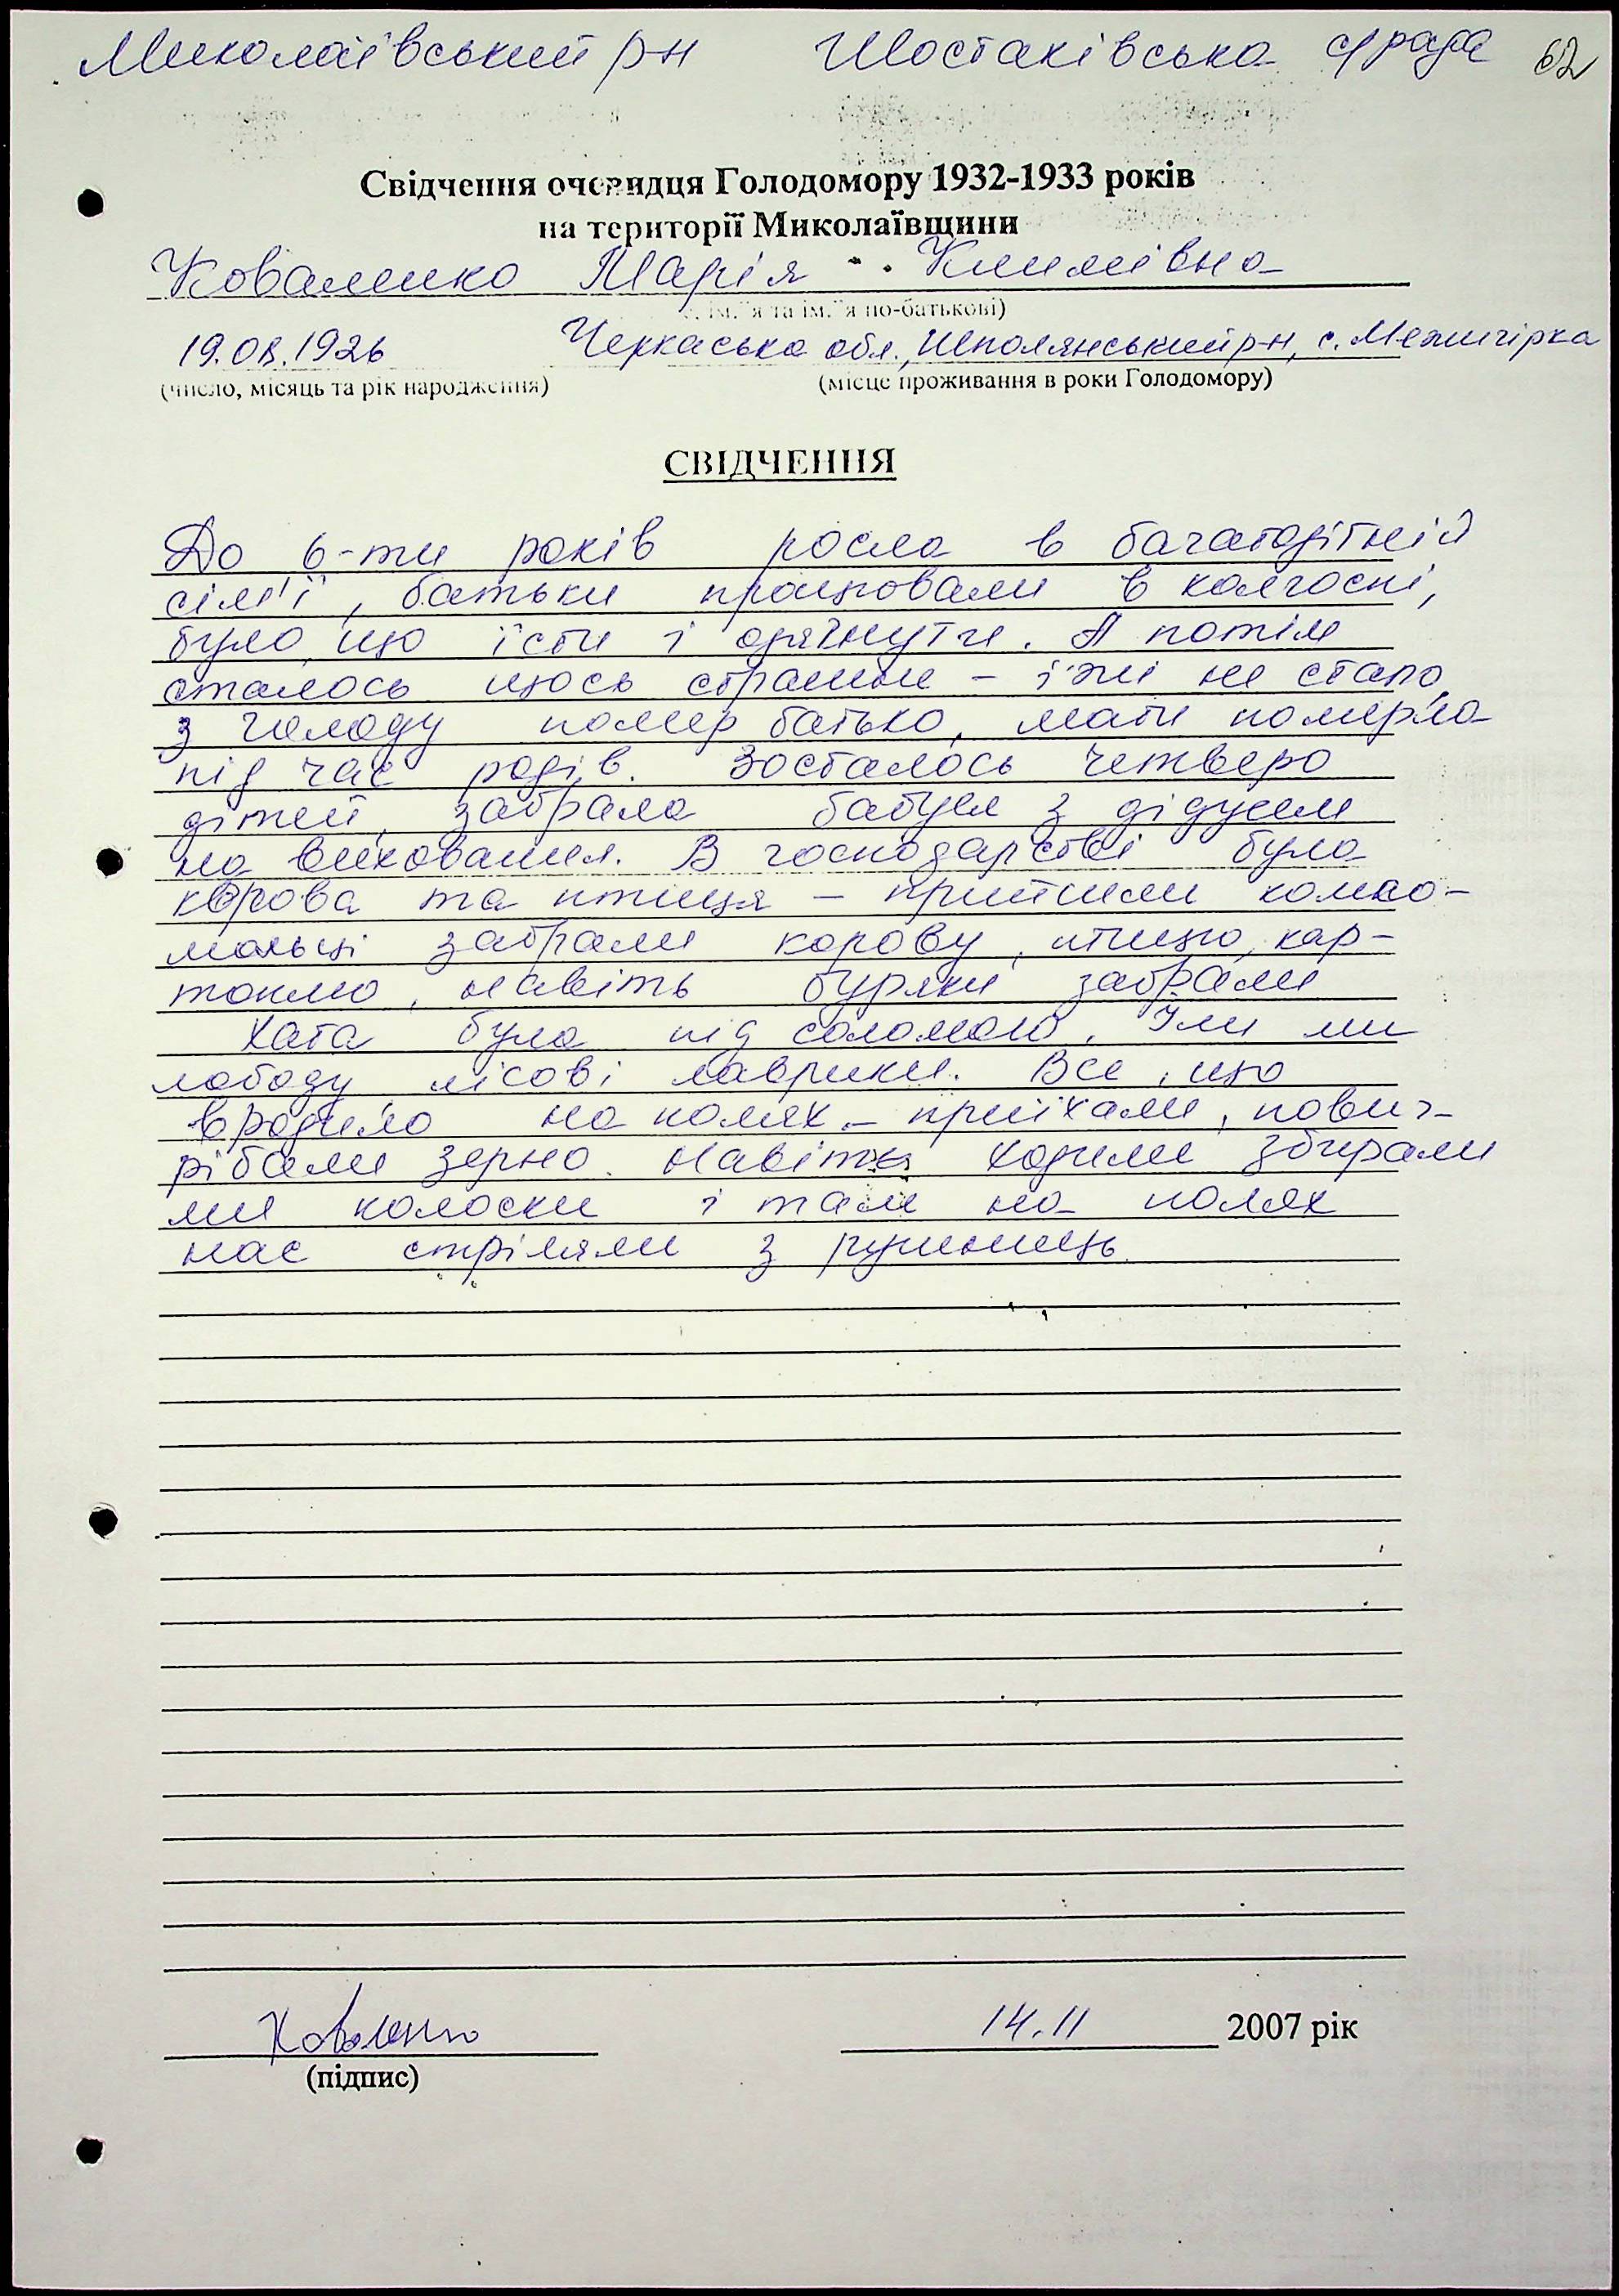 Миколаївський р-н Шостаківська с/рада 62
Свідчення очевидця Голодомору 1932-1933 років
на території Миколаївщини
Коваленко Марія Климівна
ім."я та ім."я по-батькові)
19.08.1926 Черкаська обл., Шполянський р-н, с. Межигірка
(число, місяць та рік народження) (місце проживання в роки Голодомору)
СВІДЧЕННЯ
До 6-ти років росла в багатодітній
сім'ї, батьки працювали в колгоспі,
було що їсти і одягнути. А потім
сталось щось страшне – їжі не стало,
з голоду помер батько, мати померла
під час родів. Зосталось четверо
дітей, забрала бабуся з дідусем
на виховання. В господарстві була
корова та птиця – прийшли комсо-
мольці забрали корову, птицю, кар-
топлю, навіть буряки забрали
Хата була під соломою. Їли ми
лободу, лісові лаврики. Все, що
вродило на полях – приїхали, повиг-
рібали зерно. Навіть ходили збирали
ми колоски і там на полях
нас стріляли з рушниць.
Коваленко 14.11 2007 рік
(підпис)